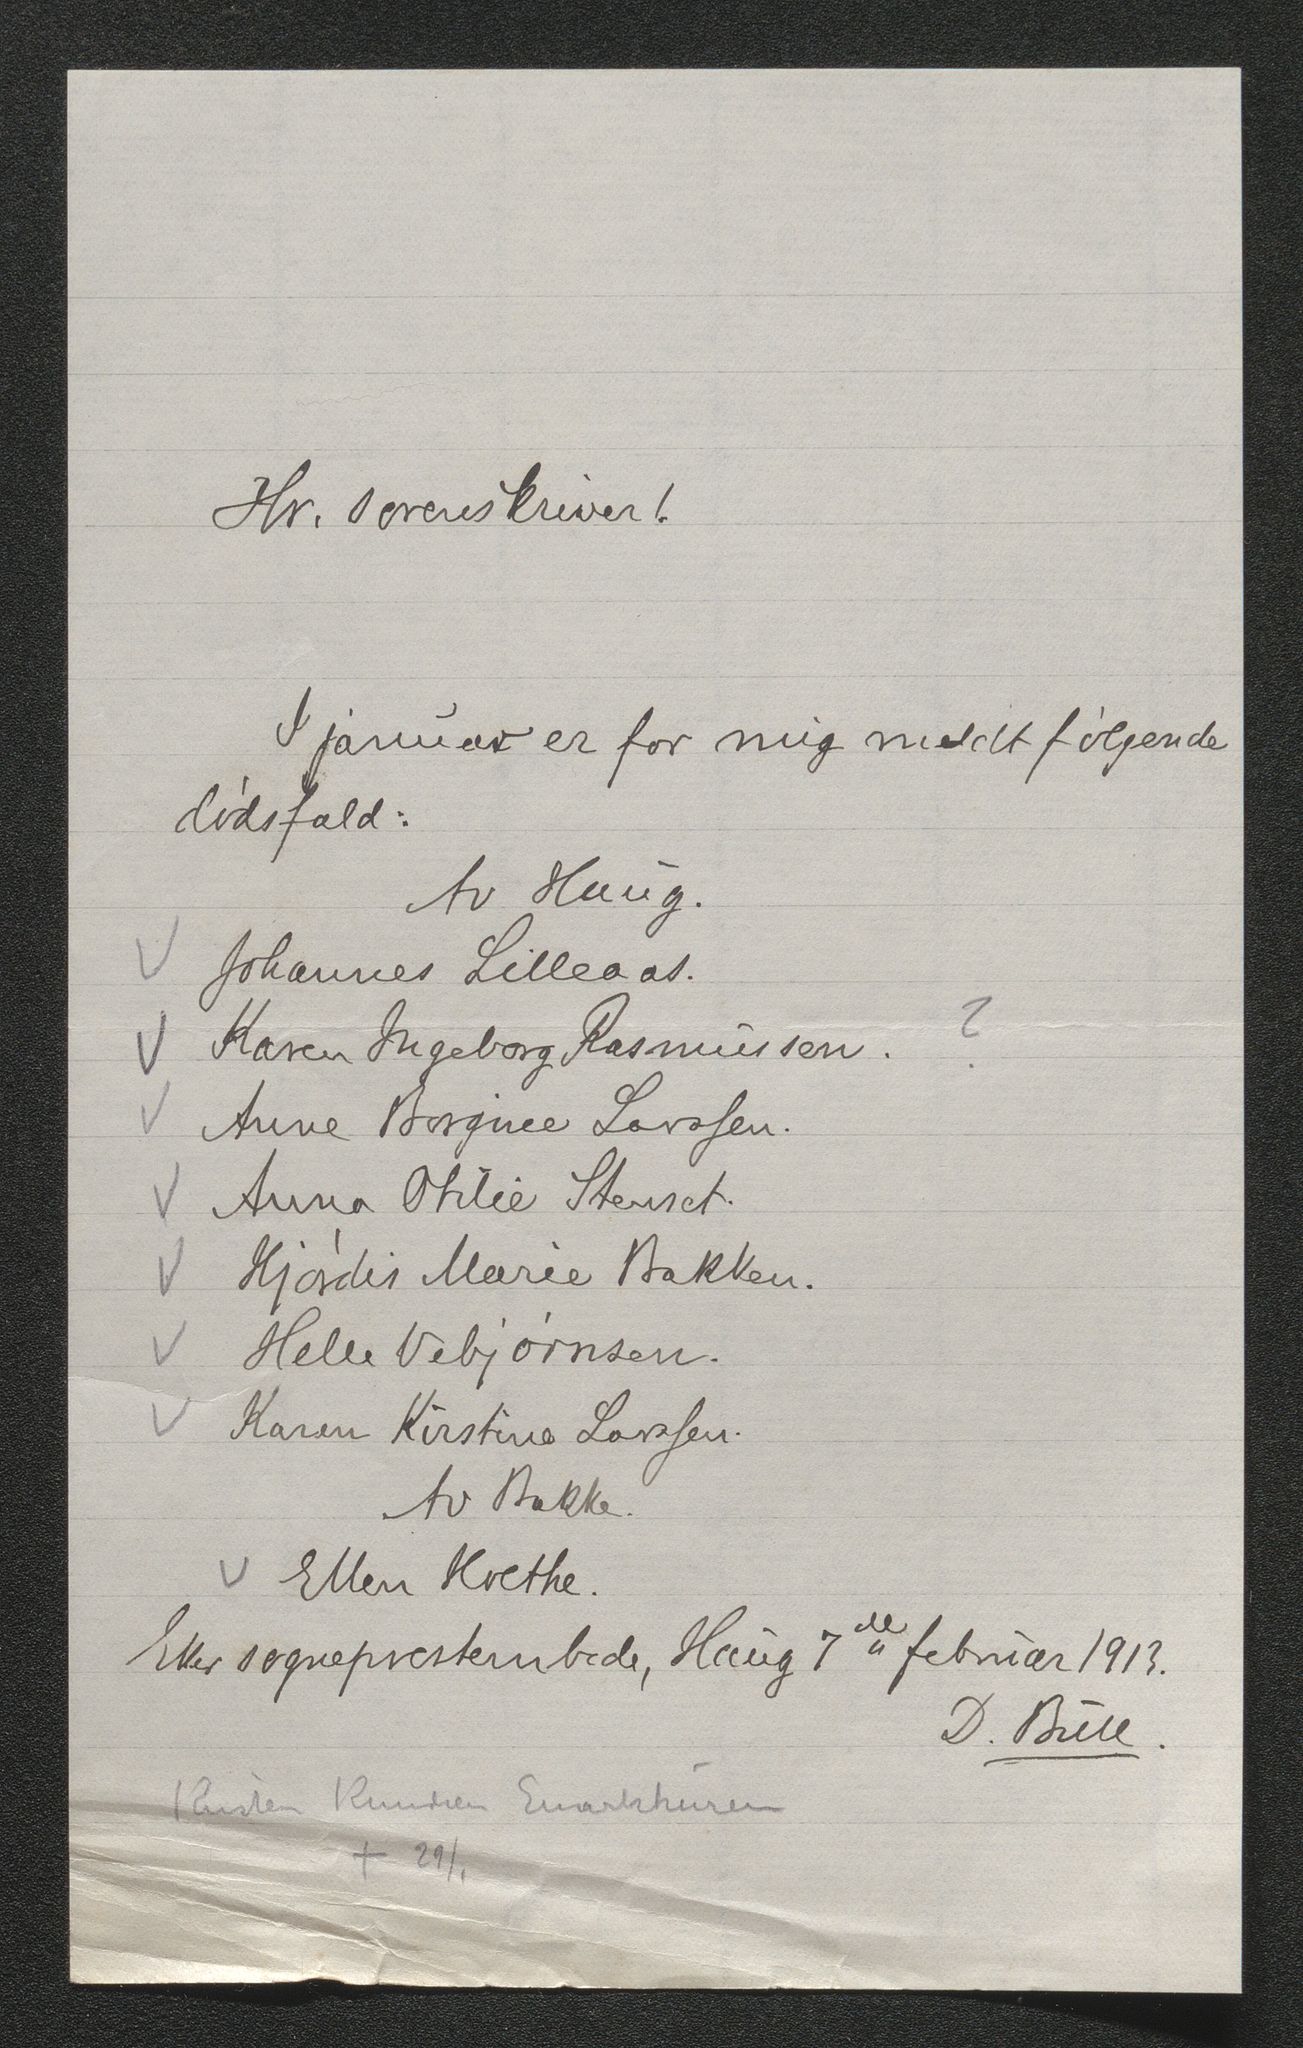 Hr. sorenskriver!
I januar er for mig meldt følgende
dødsfald:
Av Haug.
V Johannes Lilleaas.
V Karen Ingeborg Rasmussen. ?
V Anne Borgine Larssen.
V Anna Otilie Stenset.
V Hjørdis Marie Bakken.
V Helle Vebjørnsen.
V Karen Kirstine Larssen.
Av Bakke.
V Ellen Hvethe.
Eker sogneprestembede, Haug 7de februar 1913.
D. Bull.
Knudsen
+ 29/1